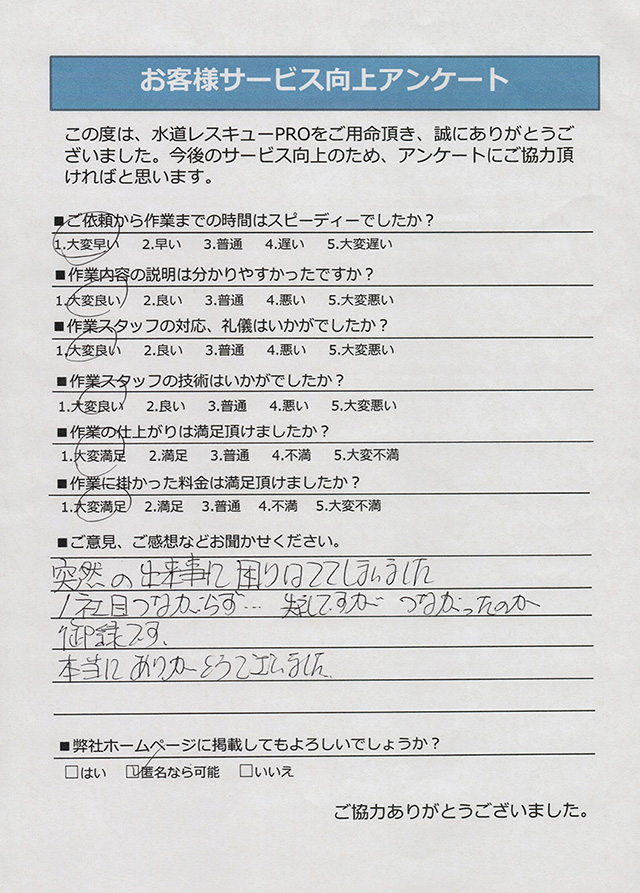 お客様サービス向上アンケート
この度は、水道レスキューPROをご用命頂き、誠にありがとうご
ざいました。今後のサービス向上のため、アンケートにご協力頂
ければと思います。
■ご依頼から作業までの時間はスピーディーでしたか？
1.大変早い 2.早い 3.普通 4.遅い 5.大変遅い
■作業内容の説明は分かりやすかったですか？
1.大変良い 2.良い 3.普通 4.悪い 5.大変悪い
■作業スタッフの対応、礼儀はいかがでしたか？
1.大変良い 2.良い 3.普通 4.悪い 5.大変悪い
■作業スタッフの技術はいかがでしたか？
1.大変良い 2.良い 3.普通 4.悪い 5.大変悪い
■作業の仕上がりは満足頂けましたか？
1.大変満足 2.満足 3.普通 4.不満 5.大変不満
■作業に掛かった料金は満足頂けましたか？
1.大変満足 2.満足 3.普通 4.不満 5.大変不満
■ご意見、ご感想などお聞かせください。
突然の出来事に困りはててしまいました
1社目つながらず… ですが つながったのが
御録です、
本当にありがとうございました
■弊社ホームページに掲載してもよろしいでしょうか？
□はい □匿名なら可能 □いいえ
ご協力ありがとうございました。